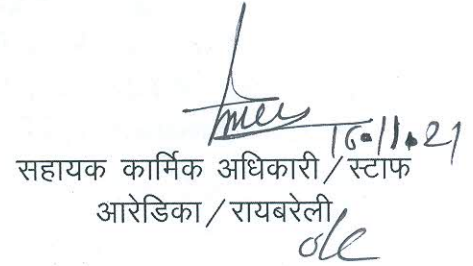 16.11.21
सहायक कार्मिक अधिकारी / स्टाफ
आरेडिका / रायबरेली